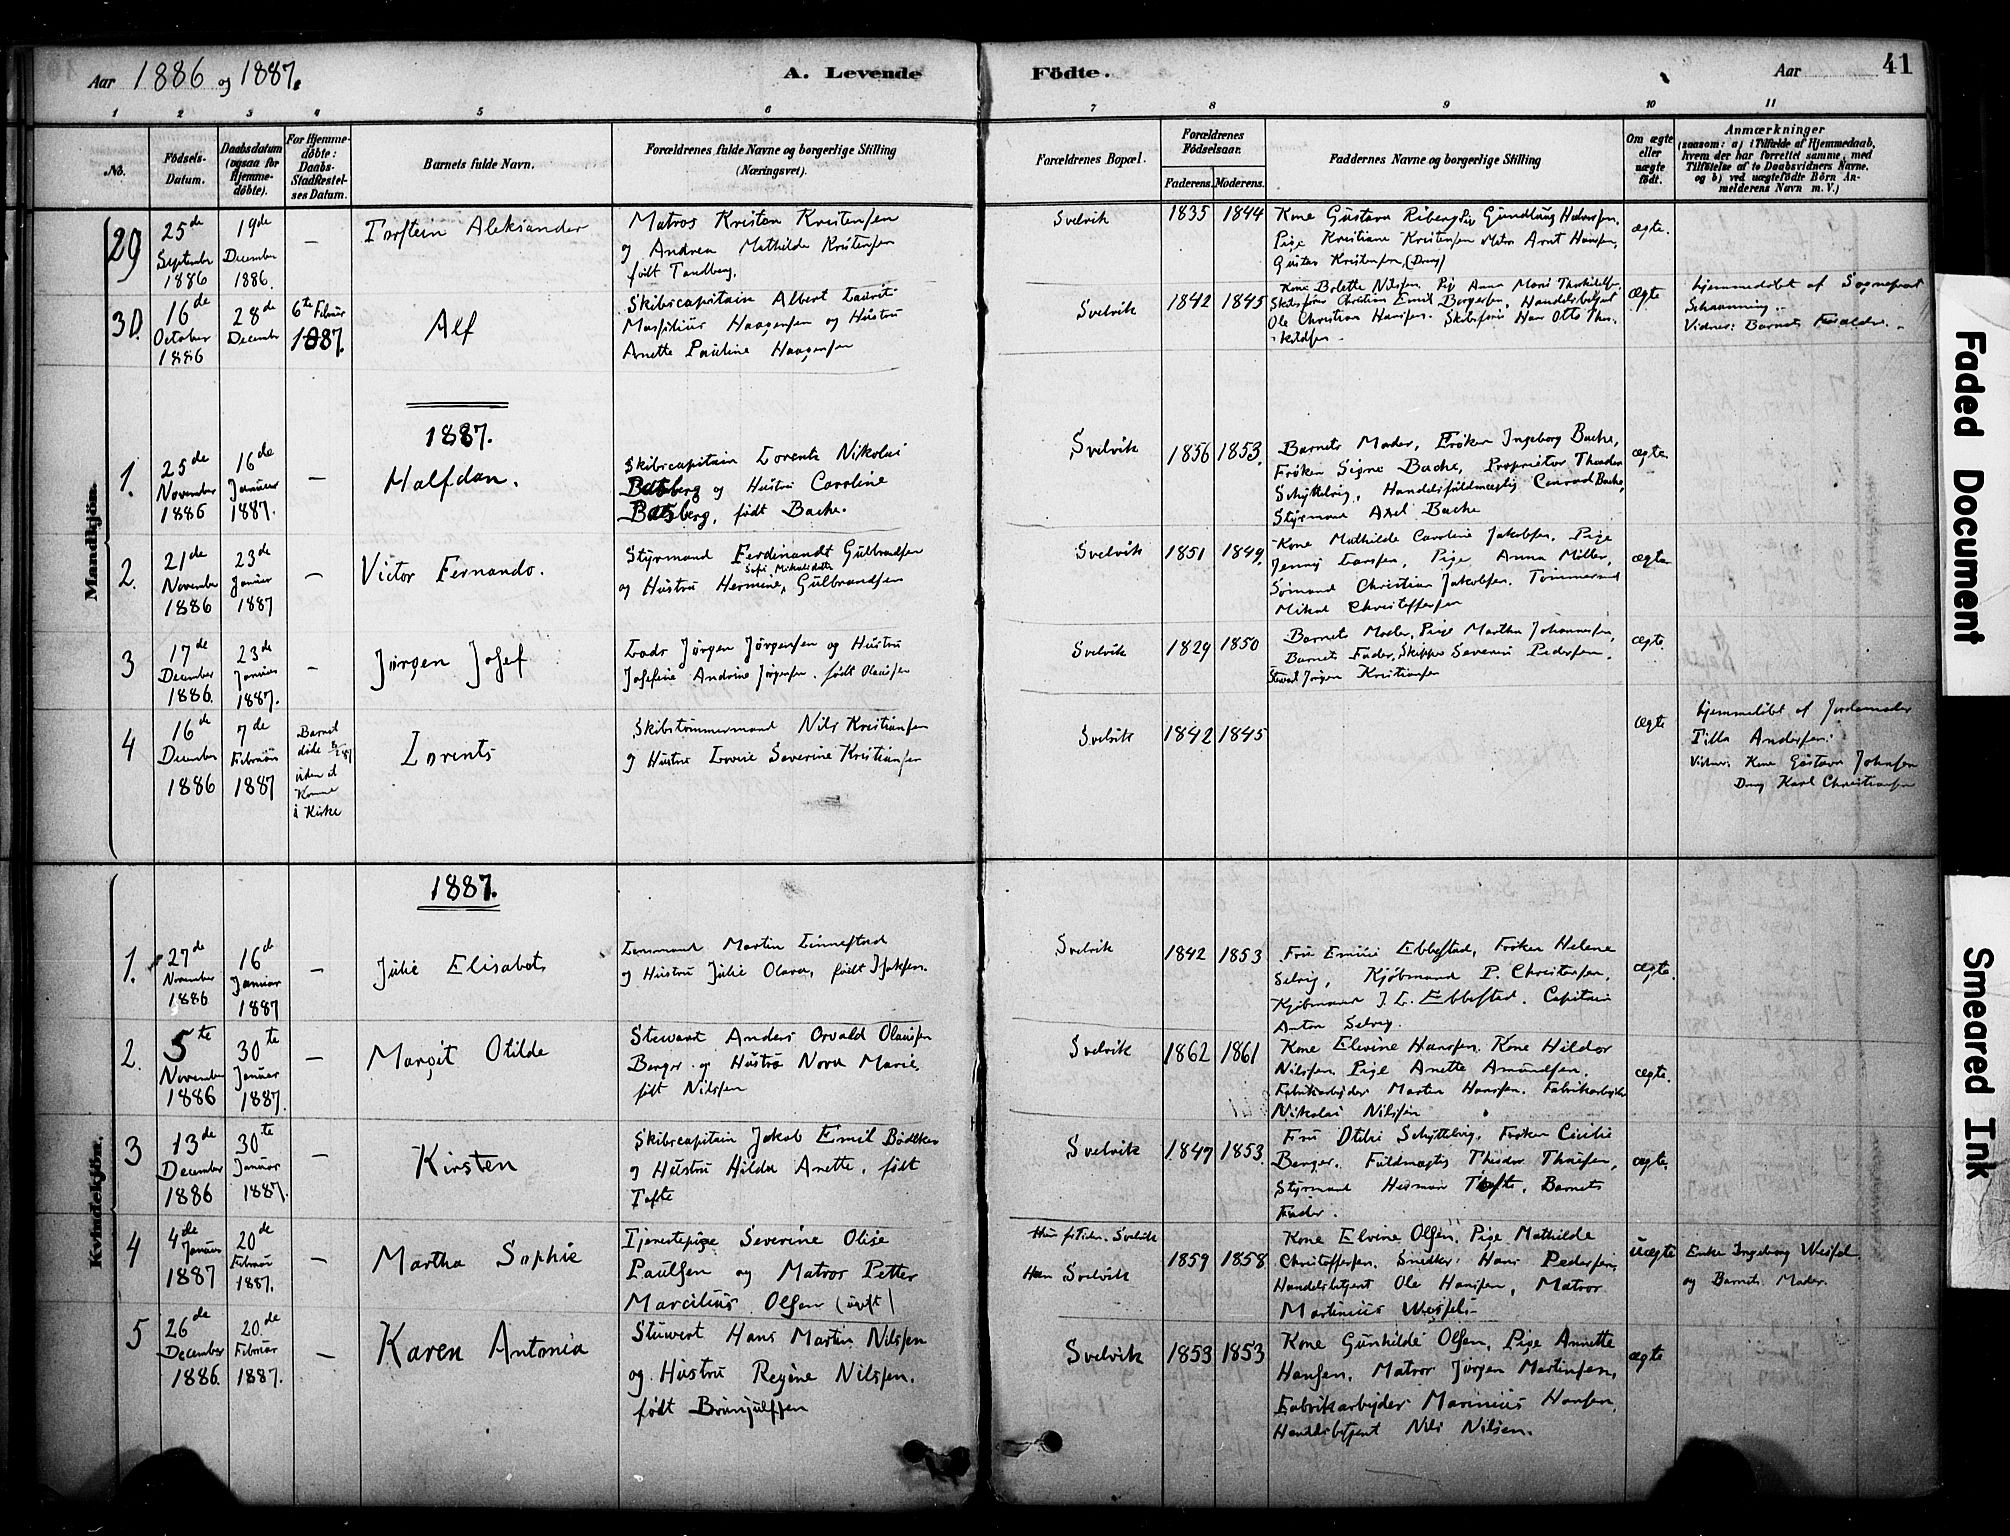 Aar 1886 og 1887.
A. Levende Födte.
Aar
41
1 2 3 4 5 6 7 8 9 10 11
No.
Födsels-Datum.
Daabsdatum (ogsaa for Hjemme-döbte).
For Hjemme-döbte: Daabs-Stadfæstel-ses Datum.
Barnets fulde Navn.
Forældrenes fulde Navne og borgerlige Stilling (Næringsvei).
Forældrenes Bopæl.
Forældrenes Födselsaar.
Faderens. Moderens.
Faddernes Navne og borgerlige Stilling
Om ægte eller uægte födt.
Anmærkninger
(saasom: a) i Tilfælde af Hjemmedaab, hvem der har forrettet samme, med Tilföielse af to Daabsvidners Navne, og b) ved uægtefödte Börn An-melderens Navn m. V.)
Mandkjön.
29 25de September 1886 19de December 1886. – Torstein Aleksander
Matros Kristen Kristensen
og Andrea Mathilde Kristensen
født Tandberg.
Svelvik 1835 1844
Kone Gustava Riberg Pige Gundlaug Halvorsen,
Pige Kristiane Kristensen Matros Arnt Hansen,
Gustav Kristensen (Dreng)
ægte.
30. 16de October 1886 28de December 6te Februar 1887. Alf
Skibscapitain Albert Laurits
Marsilius Haagensen og Hustru
Anette Pauline Haagensen
Svelvik 1842 1845
Kone Bolette Nilsen, Pige Anna Marie Thorkildsen,
Skibsfører Christian Emil Borgersen, Handelsbetjent
Ole Christian Hansen. Skibsfører Hans Otto Thor-
kildsen
Ægte
hjemmedøbt af Sogneprest
Schanning.
Vidner: Barnets Forældre.
1887.
1. 25de November 1886 16de Januar 1887. – Halfdan.
Skibscapitain Lorents Nikolai
Batsberg og Hustru Caroline
Batsberg, født Bache.
Svelvik 1856 1853.
Barnets Moder, Frøken Ingeborg Bache,
Frøken Signe Bache, Proprietær Theodor
Schyttelvig, Handelsfuldmægtig Conrad Bache,
Styrmand Axel Bache
ægte
2. 21de November 1886 23de Januar 1887 – Victor Fernando.
Styrmand Ferdinandt Gulbrandsen
og Hustru Hermine, Gulbrandsen
Svelvik 1851 1849.
Kone Mathilde Caroline Jakobsen, Pige
Jenny Larsen, Pige Anna Møller,
Sømand Christian Jakobsen. Tømmermand
Mikal Christoffersen
ægte
3 17de December 1886. 23de Januar 1887. – Jørgen Josef
Lods Jørgen Jørgensen og Hustru
Josefine Andrine Jørgensen. født Olausen
Svelvik 1829 1850
Barnets Moder, Pige Martha Johannesen,
Barnets Fader, Skipper Severin Pedersen,
Steward Jørgen Kristiansen
ægte
4 16de December 1886 7de Februar 1887
Barnet døde 8/2 87 uden at Komme i Kirke
Lorents
Skibstømmermand Nils Kristiansen
og Hustru Lovise Severine Kristiansen
Svelvik 1842 1845
Ægte
hjemmedøbt af Jordemoder
Tilla Andersen.
Vidner: Kone Gustava Johnsen
Dreng Karl Christiansen
Kvindekjön.
1887.
1. 27de November 1886 16de Januar 1887 – Julie Elisabet
Lensmand Martin Linnestad
og Hustru Julie Olava, født Isaksen.
Svelvik 1842 1853
Fru Emilie Ebbestad, Frøken Helene
Selvig, Kjøbmand P. Christensen,
Kjøbmand J. L. Ebbestad. Capitain
Anton Selvig.
ægte.
2. 5te November 1886 30te Januar 1887. – Margit Otilde
Stewart Anders Osvald Olausen
Berger og Hustru Nora Marie,
født Nilssen
Svelvik 1862 1861
Kone Elevine Hanssen. Kone Hilda
Nilssen, Pige Anette Amundsen,
Fabrikarbejder Martin Hanssen. Fabrikarbejder
Nikolai Nilssen
ægte.
3 13de December 1886 30te Januar 1887. – Kirsten
Skibscapitain Jakob Emil Bødtker
og Hustru Hilda Anette, født
Tofte
Svelvik 1849 1853.
Fru Otilie Schyttelvig, Frøken Cicilie
Berger. Fuldmægtig Theodor Thaulsen,
Styrmand Herman Tofte, Barnets
Fader.
ægte
4 4de Januar 1887 20de Februar 1887. – Martha Sophie
Tjenestepige Severine Olise
Paulsen og Matros Petter
Marcilius Olsen (ugift)
Svelvik
Han Svelvik 1859 1858
Kone Elvine Olsen, Pige Mathilde
Christoffersen. Snedker Hans Pedersen,
Handelsbetjent Ole Hansen, Matros
Martinius Wessel.
uægte
Enke Ingeborg Wessel
og Barnets Moder.
5 26de December 1886. 20de Februar 1887. – Karen Antonia
Stuwert Hans Martin Nilssen
og Hustru Regine Nilssen,
født Brünjulfsen
Svelvik 1853 1853
Kone Gunhilde Olsen, Pige Annette
Hansen, Matros Jørgen Martinsen,
Fabrikarbejder Marinius Hansen,
Handelsbetjent Nils Nilsen.
ægte
Faded Document
Smeared Ink